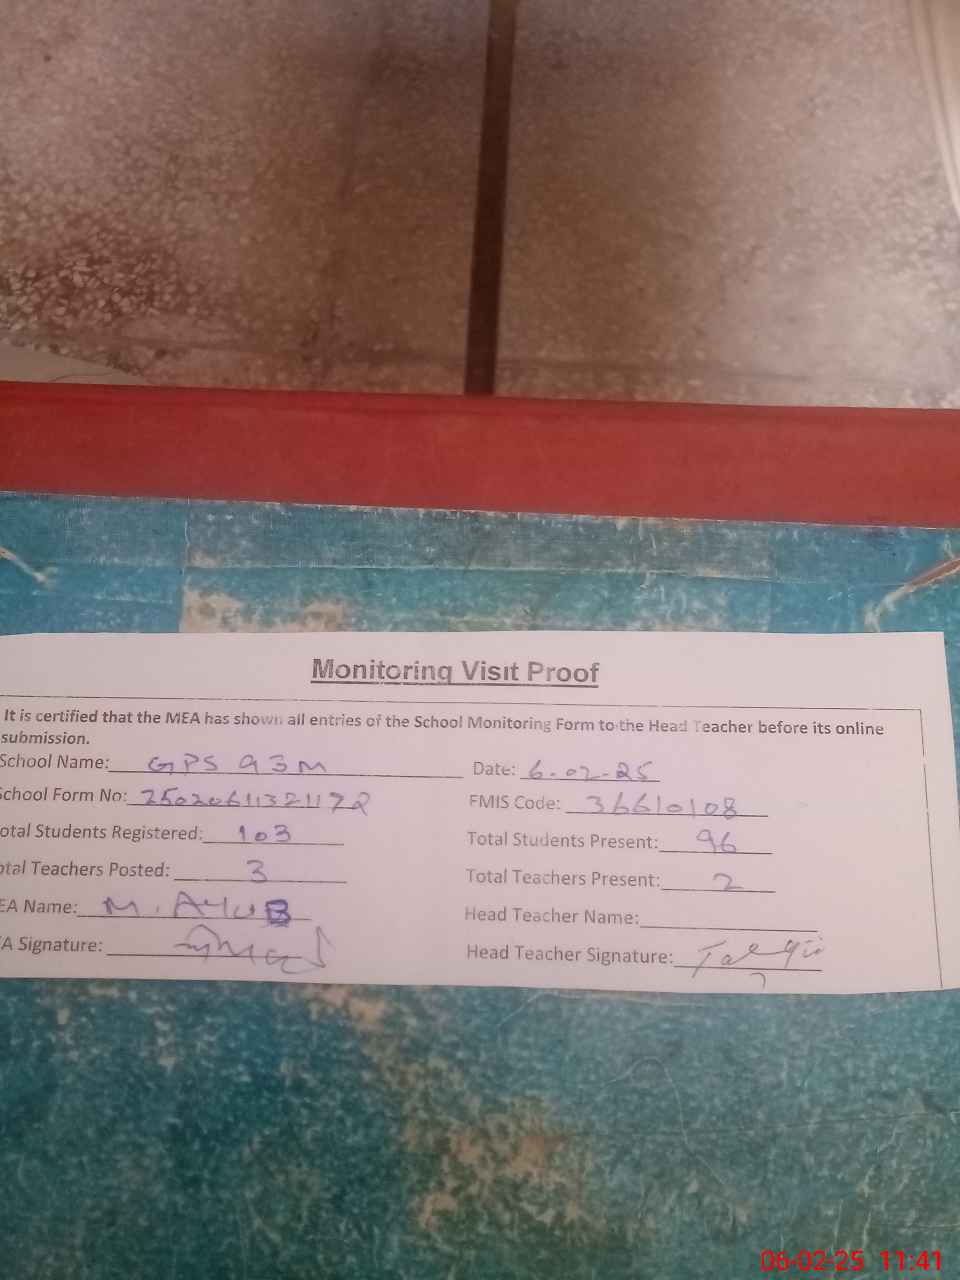 Monitoring Visit Proof
It is certified that the MEA has shown all entries of the School Monitoring Form to the Head Teacher before its online
submission.
School Name: GPS 93M Date: 6-02-25
School Form No: 25020611321172 FMIS Code: 36610108
otal Students Registered: 103 Total Students Present: 96
otal Teachers Posted: 3 Total Teachers Present: 2
EA Name: M. AYUB Head Teacher Name:
A Signature: Head Teacher Signature:
06-02-25 11:41